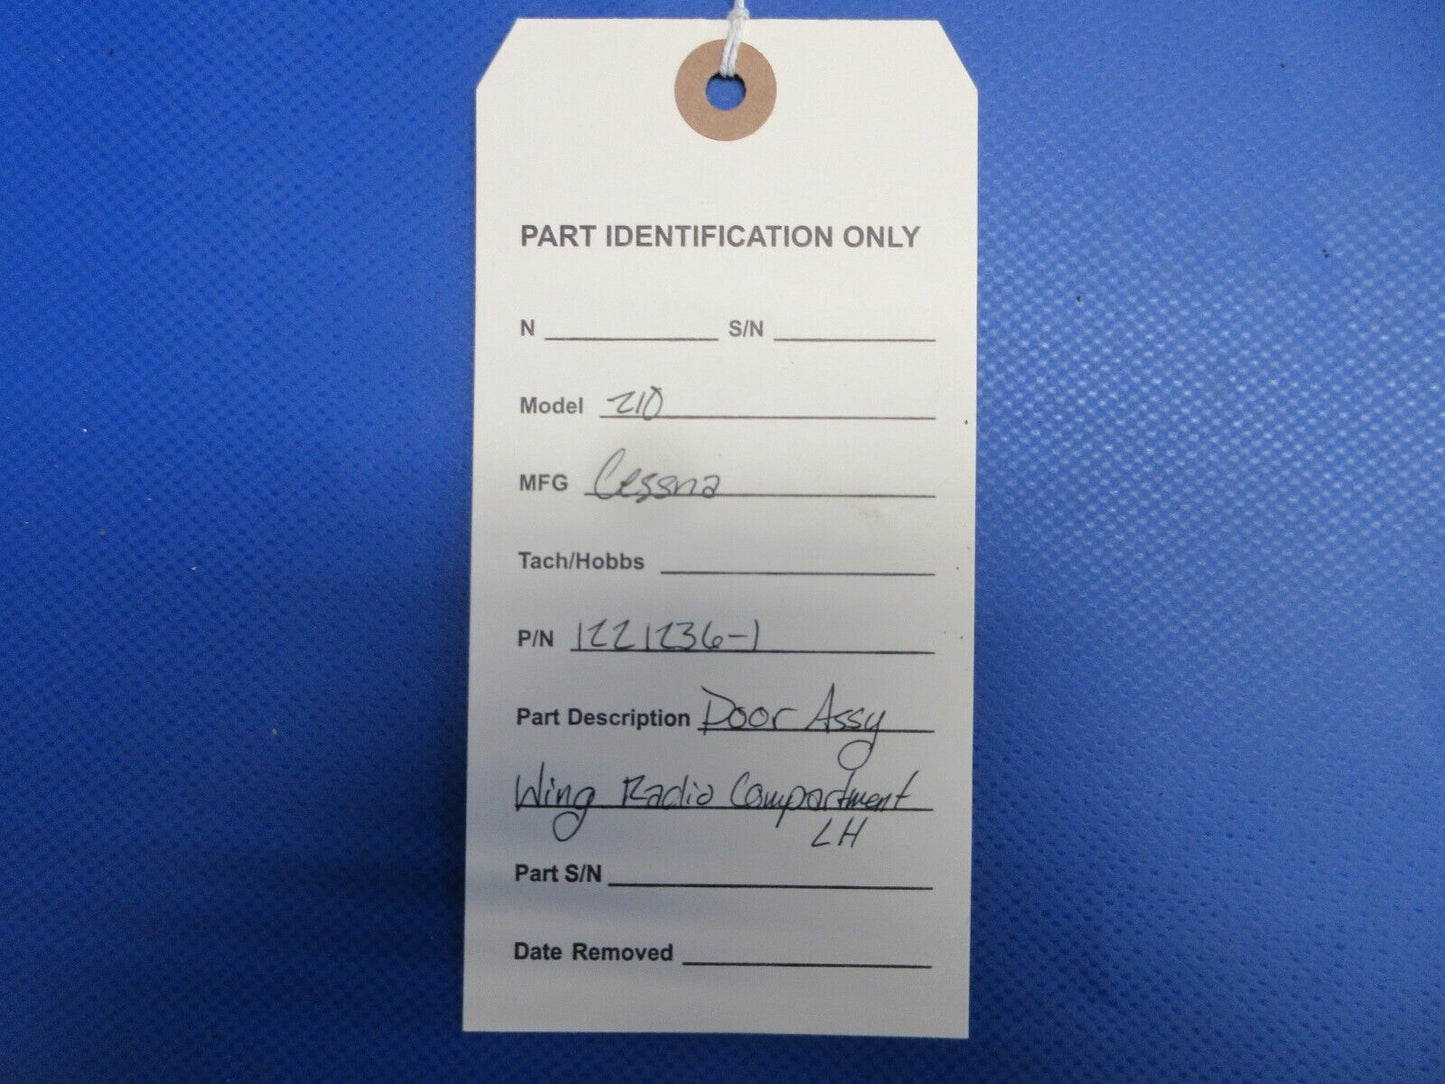 PART IDENTIFICATION ONLY
N S/N
Model 210
MFG Cessna
Tach/Hobbs
P/N 1221236-1
Part Description Door Assy
Wing Radio Compartment
LH
Part S/N
Date Removed